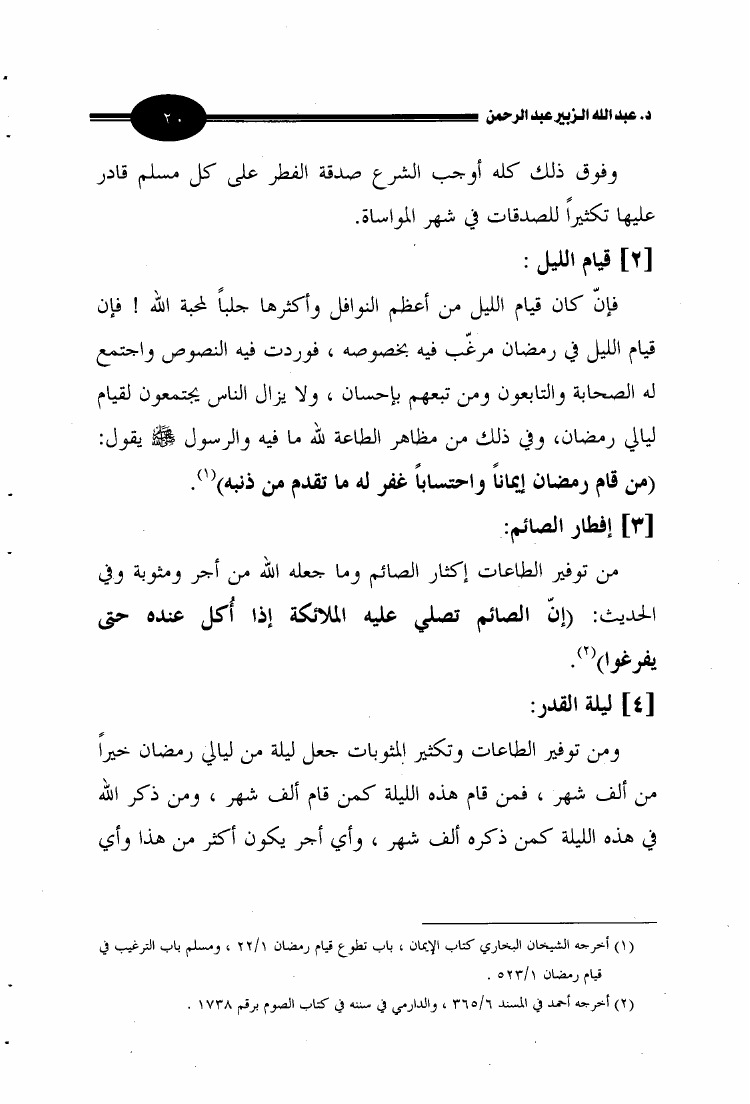 د. عبد الله الزبير عبد الرحمن ٢٠
وفوق ذلك كله أوجب الشرع صدقة الفطر على كل مسلم قادر
عليها تكثيراً للصدقات في شهر المواساة.
[٢] قيام الليل :
فإنّ كان قيام الليل من أعظم النوافل وأكثرها جلباً لمحبة الله ! فإن
قيام الليل في رمضان مرغّب فيه بخصوصه ، فوردت فيه النصوص واجتمع
له الصحابة والتابعون ومن تبعهم بإحسان ، ولا يزال الناس يجتمعون لقيام
ليالي رمضان، وفي ذلك من مظاهر الطاعة لله ما فيه والرسول ﷺ يقول:
(من قام رمضان إيماناً واحتساباً غفر له ما تقدم من ذنبه)(١).
[٣] إفطار الصائم:
من توفير الطاعات إكثار الصائم وما جعله الله من أجر ومثوبة وفي
الحديث: (إنّ الصائم تصلي عليه الملائكة إذا أُكل عنده حتى
يفرغوا)(٢).
[٤] ليلة القدر:
ومن توفير الطاعات وتكثير المثوبات جعل ليلة من ليالي رمضان خيراً
من ألف شهر ، فمن قام هذه الليلة كمن قام ألف شهر ، ومن ذكر الله
في هذه الليلة كمن ذكره ألف شهر ، وأي أجر يكون أكثر من هذا وأي
(١) أخرجه الشيخان البخاري كتاب الإيمان ، باب تطوع قيام رمضان ٢٢/١ ، ومسلم باب الترغيب في
قيام رمضان ٥٢٣/١ .
(٢) أخرجه أحمد في المسند ٣٦٥/٦ ، والدارمي في سننه في كتاب الصوم برقم ١٧٣٨ .